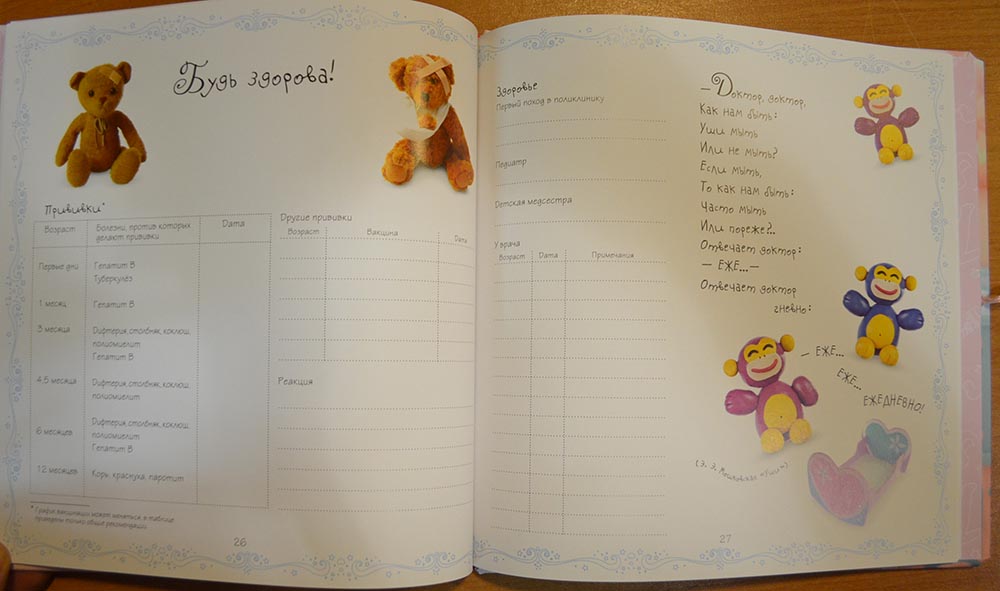 Будь здорова!
Прививки*
Возраст
Болезни, против которых
делают прививки
Дата
Первые дни
Гепатит В
Туберкулёз
1 месяц
Гепатит В
3 месяца
Дифтерия, столбняк, коклюш,
полиомиелит
Гепатит В
4,5 месяца
Дифтерия, столбняк, коклюш,
полиомиелит
6 месяцев
Дифтерия, столбняк, коклюш,
полиомиелит
Гепатит В
12 месяцев
Корь, краснуха, паротит
* График вакцинации может меняться, в таблице
приведены только общие рекомендации.
Другие прививки
Возраст
Вакцина
Дата
Реакция
26
Здоровье
Первый поход в поликлинику
Педиатр
Детская медсестра
У врача
Возраст
Дата
Примечания
— Доктор, доктор,
Как нам быть:
Уши мыть
Или не мыть?
Если мыть,
То как нам быть:
Часто мыть
Или пореже?..
Отвечает доктор:
— ЕЖЕ... —
Отвечает доктор
гневно:
— ЕЖЕ...
ЕЖЕ...
ЕЖЕДНЕВНО!
(Э. Э. Мошковская «Уши»)
27